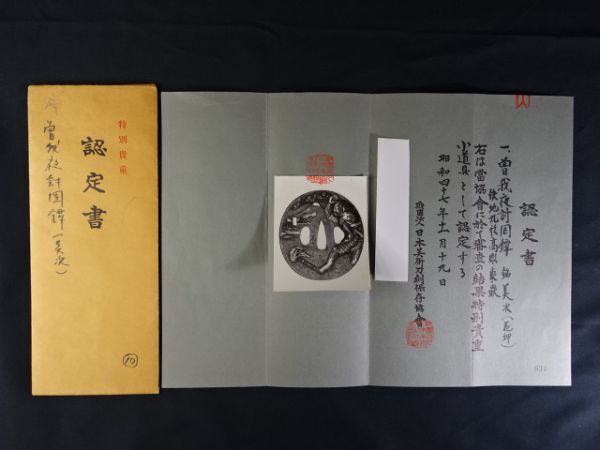 特別貴重
認定書
曽我夜討図鐔(美次)
10
認定書
一、曽我夜討図鐔 銘 美次(花押)
鉄地丸形高彫象嵌
右は當協會に於て審査の結果特別貴重
小道具として認定する
昭和四十七年十一月十九日
財團法人日本美術刀剣保存協會